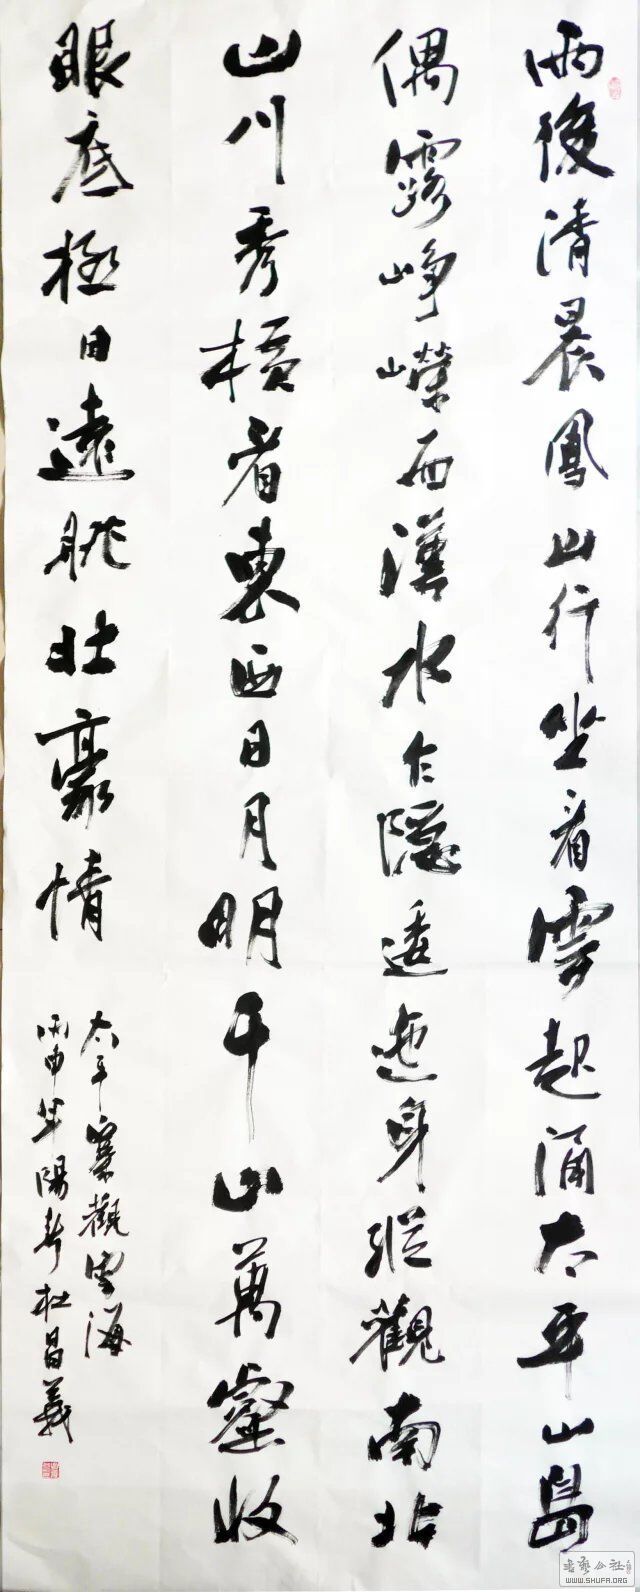 雨後清晨鳳山行坐看雲起涌太平山島
偶露崢嶸面漢水乍隱逶迤身縱觀南北
山川秀橫看東西日月明千山萬壑收
眼底極目遠眺壯豪情
太平寨觀雲海
丙申年陽春杜昌義
書藝公社
WWW.SHUFA.ORG